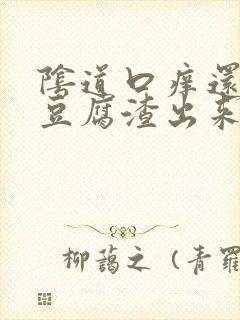 陰道口痒還
豆腐渣出来
柳藹之（青羅